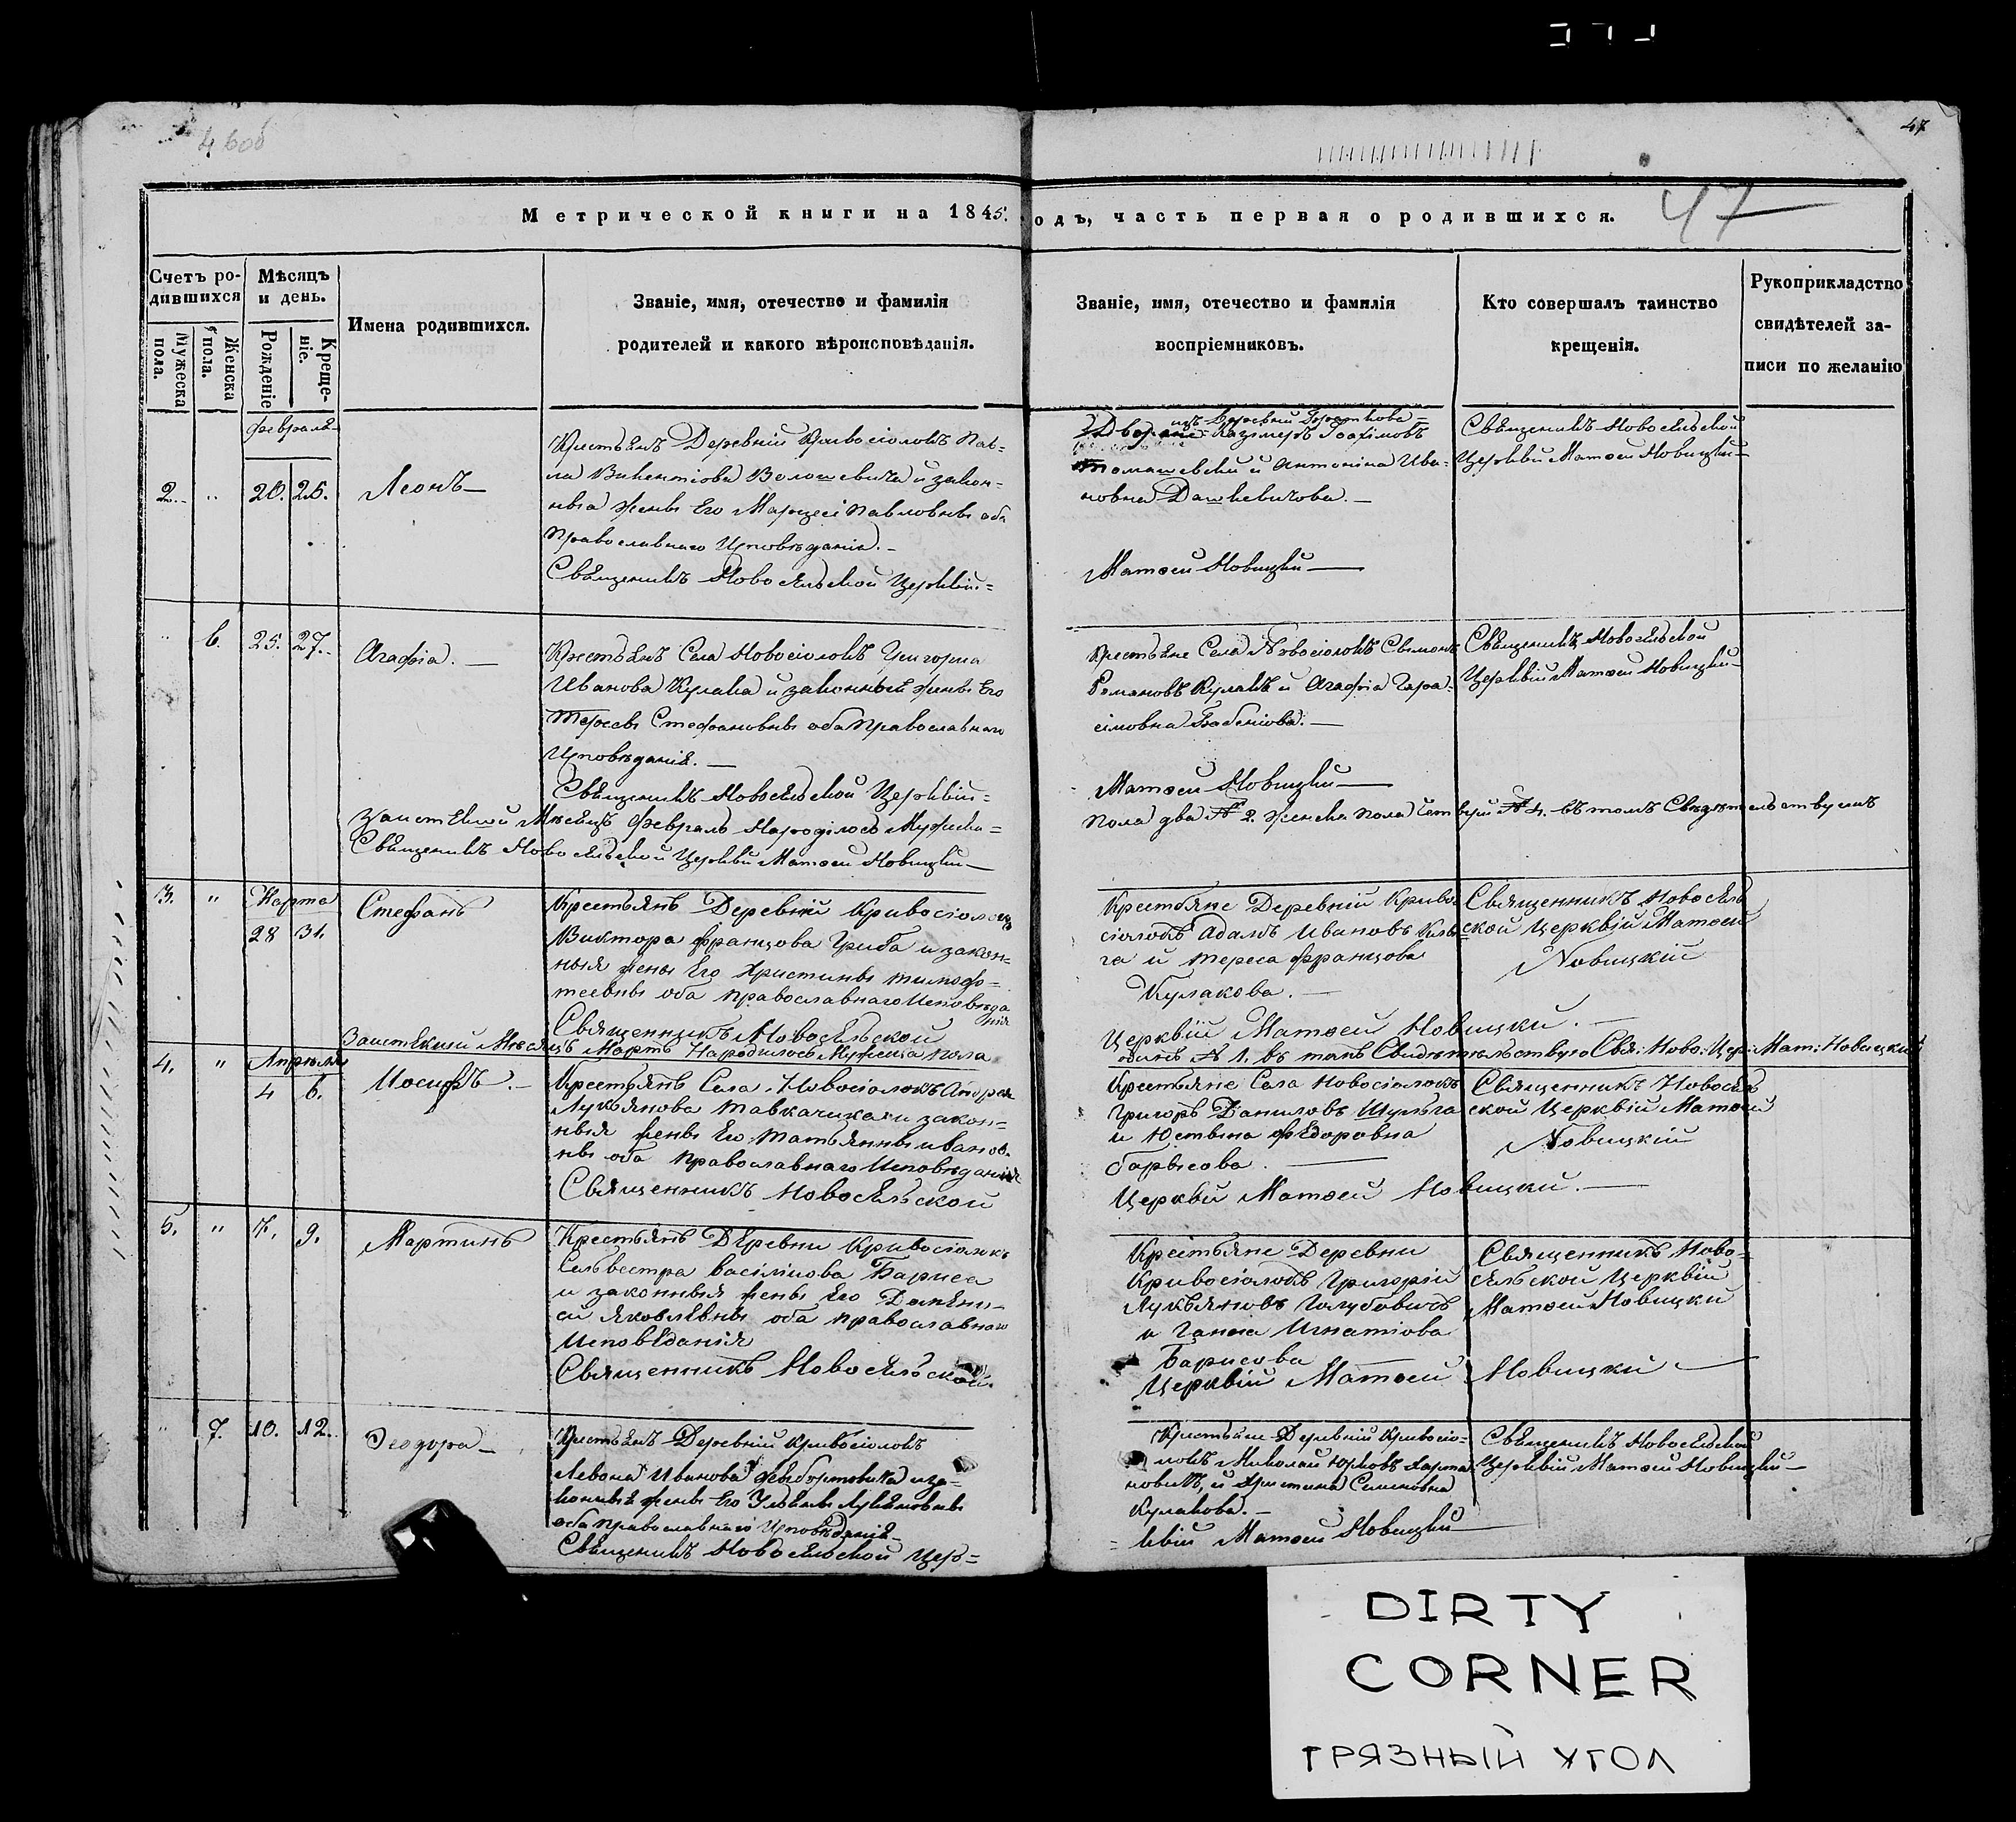 46об
47
47
Метрической книги на 1845. одъ, часть первая о родившихся.
Счетъ ро-
дившихся
Мужеска
пола.
Женска
пола.
Мѣсяцъ
и день.
Рожденіе
Креще-
ніе.
Имена родившихся.
Званіе, имя, отечество и фамилія
родителей и какого вѣроисповѣданія.
Званіе, имя, отечество и фамилія
воспріемниковъ.
Кто совершалъ таинство
крещенія.
Рукоприкладство
свидѣтелей за-
писи по желанію
февраля
2. " 20. 25.
Леонъ
Крестьянъ Деревній Кривосіолокъ Пав-
ла Викентіова Волошевича и закон-
ныя жены Его Марцеліи Павловны оба
Православнаго Исповѣданія.
Священникъ Новосяльской Церквій=
изъ Деревни
Казимеръ Іоахімовъ
Томашевскій и Антоніна Ива-
новна Дашкевичова.
Матѳей Новицкій
Священникъ Новосяльской
Церквій Матѳей Новицкій
" 6. 25. 27.
Агафіа.
Крестьянъ Села Новосіолокъ Григоріа
Иванова Кулака и законныя жены Его
Тересы Стефановны оба Православнаго
Исповѣданія.
Священникъ Новосяльской Церквій=
Крестьяне Села Новосіолокъ
Романовъ Кулакъ и Агафіа Гара-
сімовна Бабеніова.
Матѳей Новицкій
Священникъ Новосяльской
Церквій Матѳей Новицкій
Мѣсяцъ февраль Народілось Мужеска=
пола два № 2. женска пола № 4. въ томъ
Священникъ Новосяльской Церкви Матѳей Новицкій
Марта
3. " 28 31.
Стефанъ
Крестьянъ Деревній Кривосіолокъ
Виктора францова Гриба и закон=
ныя жены Его Христины тимоф=
теевны оба православнаго Исповѣда
нія
Священникъ Новосяльской
Крестьяне Деревній Криво
сіолокъ Адамъ Ивановъ
га и тереса францова
Кулакова.
Церквій Матѳей Новицкій.
Священникъ Новосяль
ской Церквій Матѳей
Новицкій
Мѣсяцъ Мартъ Народилось Мужеска пола
одинъ № 1. въ томъ Свидѣтельствую Свя: Ново: Цер: Мат: Новицкій
Апрѣля
4. " 4 6.
Иосифъ.
Крестьянъ Села Новосіолокъ Андрея
Лукьянова и закон=
ныя жены Его Татьянны иванов-
ны оба Православнаго Исповѣданія
Священникъ Новосяльской
Крестьяне Села Новосіолокъ
Григоръ Даниловъ Шульга
и Юстына фѣдоровна
барысова.
Церквій Матѳей Новицкій.
Священникъ Новосяль
ской Церквій Матѳей
Новицкій
5. " 7. 9.
Мартинъ
Крестьянъ Деревни Кривосіолокъ
Сильвестра васіліиова Бариса
и законныя жены Его
Яковлѣвны оба православнаго
Исповѣданія
Священникъ Новосяльской
Крестьяне Деревни
Кривосіолокъ Григорій
Лукьяновъ Голубовичъ
и Ганна Игнатіова
Барисова
Церквій Матѳей Новицкій
Священникъ Ново-
сяльской Церквій
Матѳей Новицкій
" 7. 10. 12.
Ѳеодора
Крестьянъ Деревній Кривосіолокъ
Левона Иванова и за-
конныя жены Его Ульяны Лукьяновны
оба православнаго Исповѣданія
Священникъ Новосяльской Цер=
Крестьяне Деревній Кривосіо-
локъ Миколай Юрковъ
новичъ, и Христина Семеновна
Кулакова.
=квій Матѳей Новицкій
Священникъ Новосяльской
Церквій Матѳей Новицкій
DIRTY
CORNER
ГРЯЗНЫЙ УГОЛ